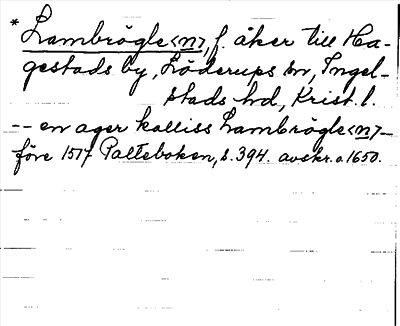 * Lambrögle<n>, f. åker till Ha-
gestads by, Löderups sn, Ingel-
stads hd, Krist. l.
-- en ager kalliss Lambrögle<n> --
före 1517 Palteboken, s. 394. avskr. o. 1650.